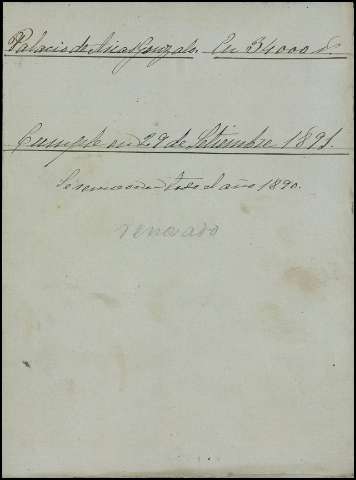 Palacio de Arias Gonzalo. En 34000 r.
Cumple en 29 de Setiembre 1891.
Se renueva en todo el año 1890.
renovado